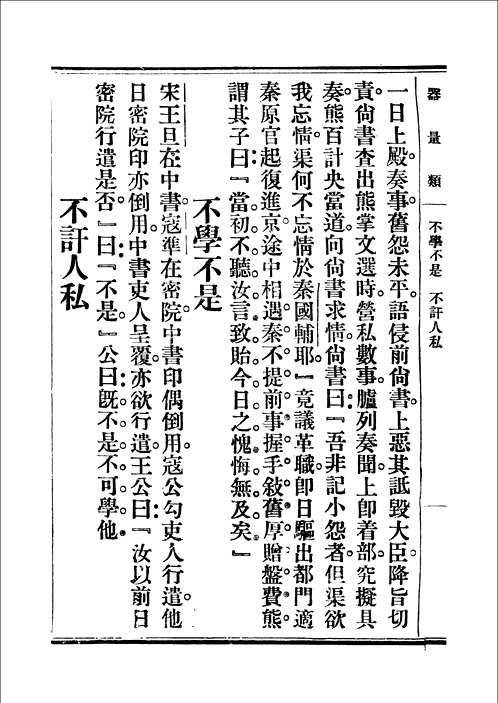 器量類 不學不是 不許人私 一
一日上殿奏事。舊怨未平。語侵前尚書。上惡其詆毀大臣。降旨切
責。尚書查出熊掌文選時。營私數事。臚列奏聞。上卽着部究擬具
奏。熊百計央當道。向尚書求情。尚書曰。『吾非記小怨者。但渠欲
我忘情。渠何不忘情於秦國輔耶。』竟議革職。卽日驅出都門。適
秦原官起復進京。途中相遇。秦不提前事。握手敍舊。厚贈盤費。熊
謂其子曰。『當初不聽汝言。致貽今日之愧。悔無及矣。』
不學不是
宋王旦在中書。寇準在密院。中書印偶倒用。寇公勾吏人行遣。他
日密院印亦倒用。中書吏人呈覆。亦欲行遣。王公曰。『汝以前日
密院行遣是否。』曰。『不是。』公曰。旣不是。不可學他。
不許人私